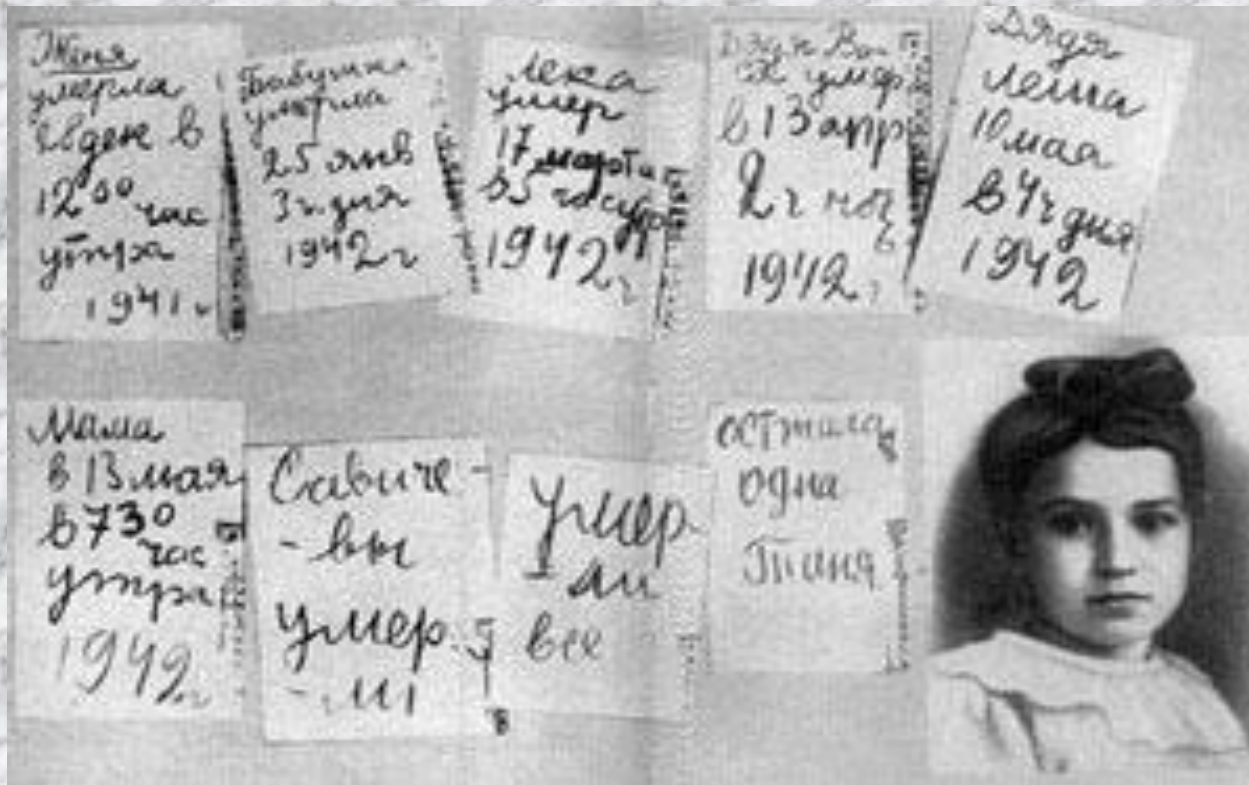 Женя
умерла
28 дек в
12 00 час
утра
1941 г
Бабушка
умерла
25 янв
3 ч. дня
1942 г
Лека
умер
17 марта
в 5 час утр
1942 г
Дядя Ва
ся умер
в 13 апр
2 ч ноч
1942 г
Дядя
Леша
10 мая
в 4 ч дня
1942
Мама
в 13 мая
в 7 30
час
утра
1942 г
Савиче-
-вы
умер
-ли
Умер
-ли
все
осталась
одна
Таня